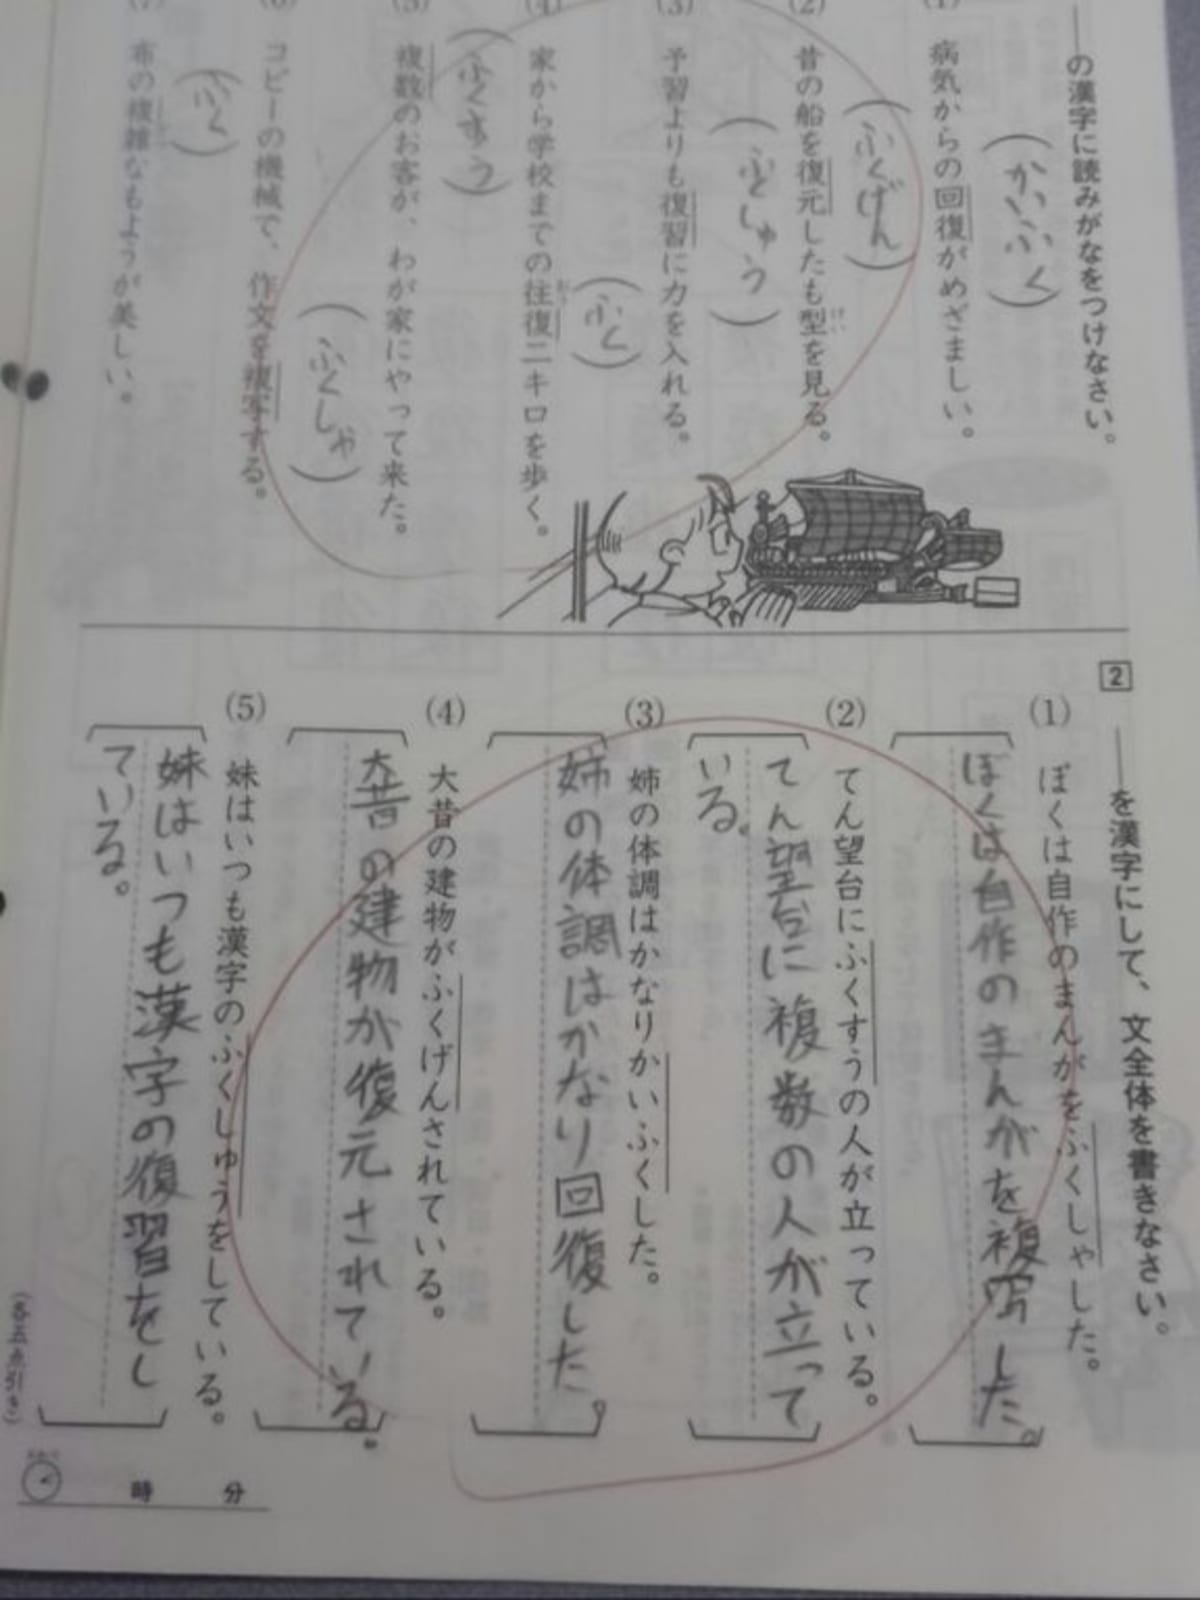 ──の漢字に読みがなをつけなさい。
(1) 病気からの回復がめざましい。
(かいふく)
(2) 昔の船を復元したも型を見る。
けい
(ふくげん)
(3) 予習よりも復習に力を入れる。
(ふくしゅう)
(4) 家から学校までの往復二キロを歩く。
おう
(ふく)
(5) 複数のお客が、わが家にやって来た。
(ふくすう)
(6) コピーの機械で、作文を複写する。
(ふくしゃ)
(7) 布の複雑なもようが美しい。
(ふく)
2 ──を漢字にして、文全体を書きなさい。
(1) ぼくは自作のまんがをふくしゃした。
ぼくは自作のまんがを複写した。
(2) てん望台にふくすうの人が立っている。
てん望台に複数の人が立って
いる。
(3) 姉の体調はかなりかいふくした。
姉の体調はかなり回復した。
(4) 大昔の建物がふくげんされている。
大昔の建物が復元されている。
(5) 妹はいつも漢字のふくしゅうをしている。
妹はいつも漢字の復習をし
ている。
(各五点引き)
時 分